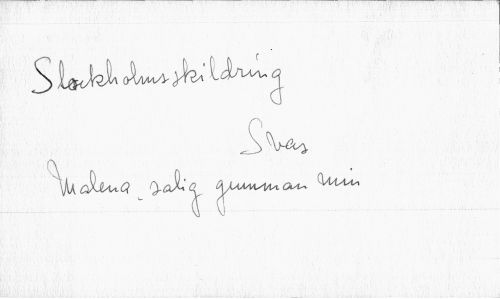 Stockholmsskildring
Svas
Malena, salig gumman min